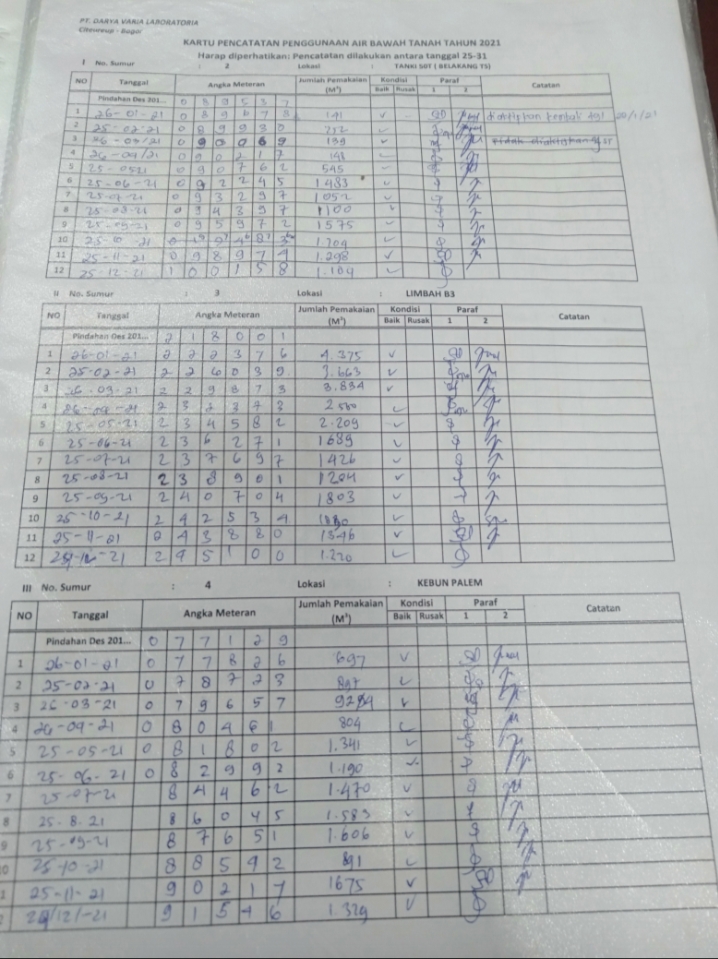 PT. DARYA VARIA LABORATORIA
Citeureup - Bogor
KARTU PENCATATAN PENGGUNAAN AIR BAWAH TANAH TAHUN 2021
Harap diperhatikan: Pencatatan dilakukan antara tanggal 25-31
I No. Sumur : 2 Lokasi : TANKI SDT ( BELAKANG TS)
NO Tanggal Angka Meteran Jumlah Pemakaian (M³) Kondisi Paraf Catatan
Baik Rusak 1 2
Pindahan Des 201... 0 8 9 5 3 7
1 26-01-21 0 8 9 6 7 8 141 ✓ diaktifkan kembali tgl 20/1/21
2 25-02-21 0 8 9 9 3 0 252 ✓
3 26-03/21 0 9 0 0 6 9 139 ✓
4 26-04/21 0 9 0 2 1 7 ✓
5 25-0521 0 9 0 7 6 2 545 ✓
6 25-06-21 0 9 2 2 4 5 1.483 ✓
7 25-07-21 0 9 3 2 9 7 1052 ✓
8 25-08-21 0 9 4 3 9 7 1100 ✓
9 25-09-21 0 9 5 9 7 2 1575 ✓
10 25-10-21 1.709 ✓
11 25-11-21 0 9 8 9 7 9 1.298 ✓
12 25-12-21 1 0 0 1 5 8 1.184 ✓
II No. Sumur : 3 Lokasi : LIMBAH B3
NO Tanggal Angka Meteran Jumlah Pemakaian (M³) Kondisi Paraf Catatan
Baik Rusak 1 2
Pindahan Des 201... 2 1 8 0 0 1
1 26-01-21 2 2 2 3 7 6 4.375 ✓
2 25-02-21 2 2 6 0 3 9 3.663 ✓
3 26-03-21 2 2 9 8 7 3 3.834 ✓
4 26-04-21 2 3 2 3 7 3 ✓
5 25-05-21 2 3 4 5 8 2 2.209 ✓
6 25-06-21 2 3 6 2 7 1 1689 ✓
7 25-07-21 2 3 7 6 9 7 1426 ✓
8 25-08-21 2 3 8 9 0 1 1204 ✓
9 25-09-21 2 4 0 7 0 4 1803 ✓
10 25-10-21 2 4 2 5 3 4 ✓
11 25-11-21 2 4 3 8 8 0 1346 ✓
12 2 4 5 1 0 0 1.220 ✓
III No. Sumur : 4 Lokasi : KEBUN PALEM
NO Tanggal Angka Meteran Jumlah Pemakaian (M³) Kondisi Paraf Catatan
Baik Rusak 1 2
Pindahan Des 201... 0 7 7 1 2 9
1 26-01-21 0 7 7 8 2 6 697 ✓
2 25-02-21 0 7 8 7 2 3 897 ✓
3 26-03-21 0 7 9 6 5 7 ✓
4 26-04-21 0 8 0 4 6 1 804 ✓
5 25-05-21 0 8 1 8 0 2 1.341 ✓
6 25-06-21 0 8 2 9 9 2 1.190 ✓
7 25-07-21 8 4 4 6 2 1.470 ✓
8 25-8-21 8 6 0 4 5 1.583 ✓
9 25-09-21 8 7 6 5 1 1.606 ✓
25-10-21 8 8 5 4 2 891 ✓
25-11-21 9 0 2 1 7 1675 ✓
9 1 5 4 6 1.329 ✓